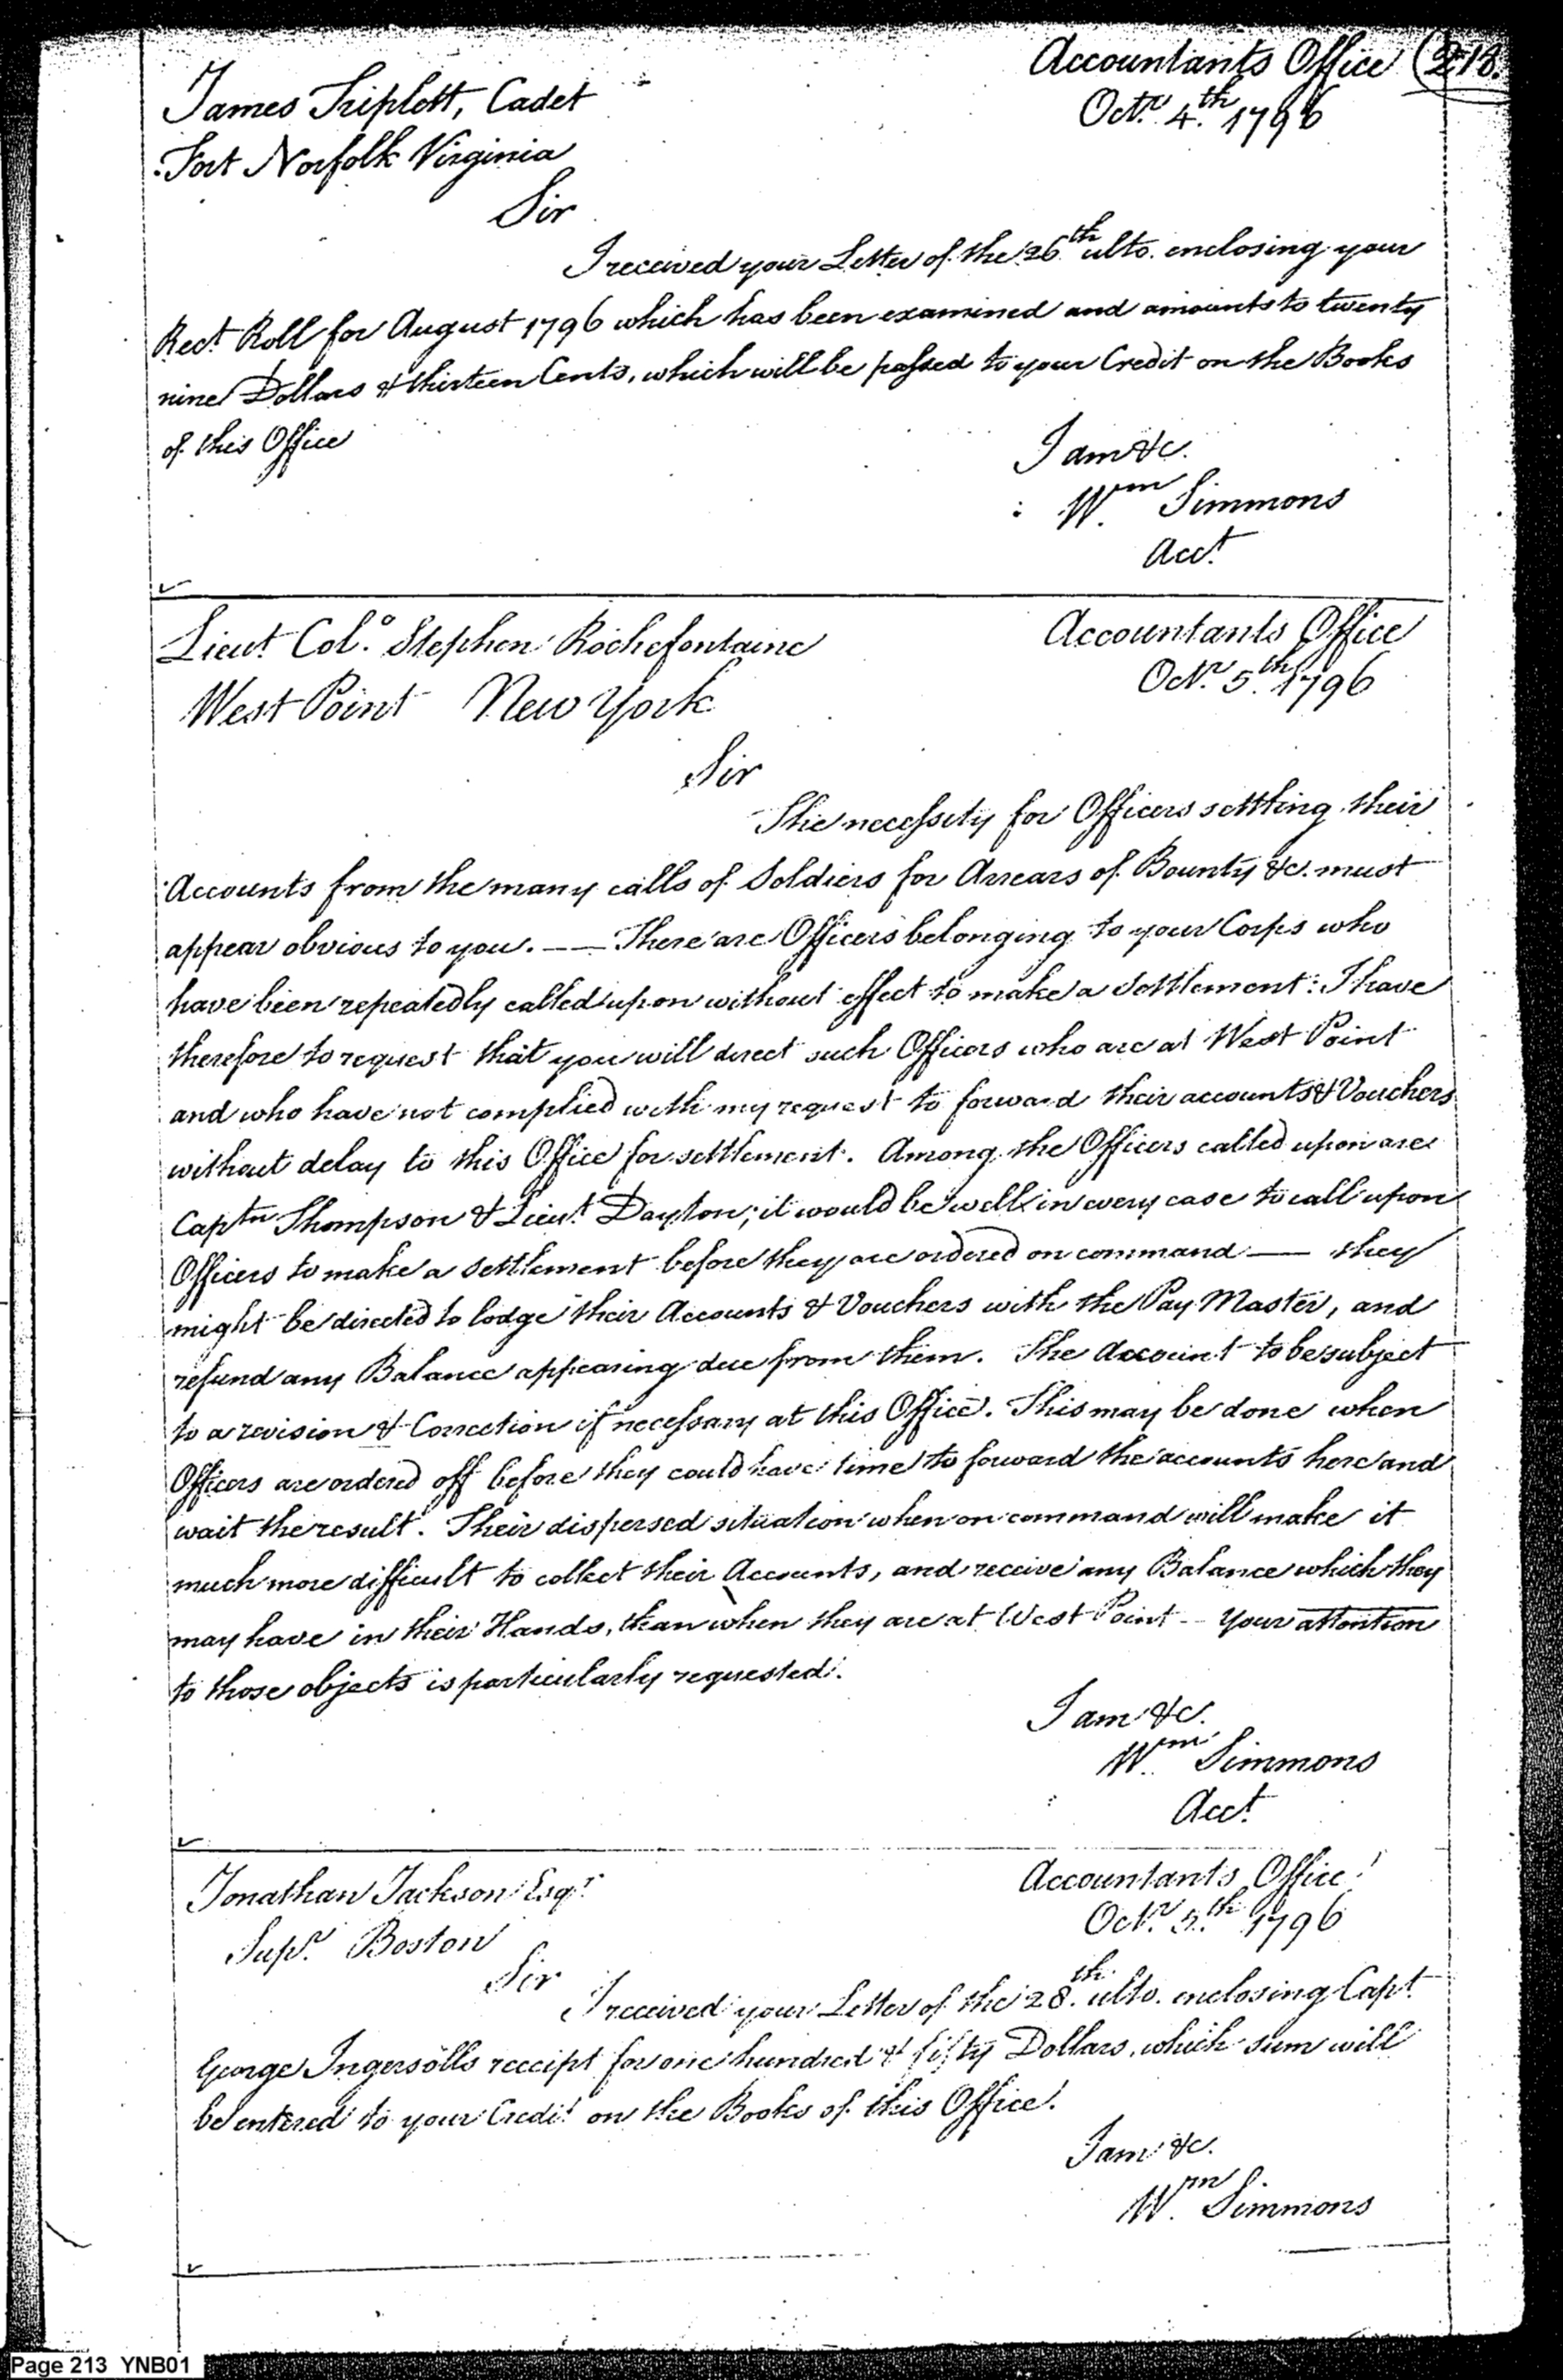 Accountants Office (213.
James Triplett, Cadet
Octr. 4.th 1796
Fort Norfolk Virginia
Sir
I received your Letter of the 26th ulto. enclosing your
Rect. Roll for August 1796 which has been examined and amounts to twenty
nine Dollars & thirteen Cents, which will be passed to your Credit on the Books
of this Office
I am &c.
Wm. Simmons
Acct.
Lieut. Colo. Stephen Rochefontaine
Accountants Office
West Point New York
Octr. 5.th 1796
Sir
The necessity for Officers settling their
Accounts from the many calls of Soldiers for Arrears of Bounty &c. must
appear obvious to you. —— There are Officers belonging to your Corps who
have been repeatedly called upon without effect to make a settlement: I have
therefore to request that you will direct such Officers who are at West Point
and who have not complied with my request to forward their accounts & Vouchers
without delay to this Office for settlement. Among the Officers called upon are
Captn Thompson & Lieut. Dayton; it would be well in every case to call upon
Officers to make a settlement before they are ordered on command —— they
might be directed to lodge their Accounts & Vouchers with the Pay Master, and
refund any Balance appearing due from them. The Account to be subject
to a revision & Correction if necessary at this Office. This may be done when
Officers are ordered off before they could have time to forward the accounts here and
wait the result. Their dispersed situation when on command will make it
much more difficult to collect their Accounts, and receive any Balance which they
may have in their Hands, than when they are at West Point - Your attention
to those objects is particularly requested.
I am &c.
Wm. Simmons
Acct.
Jonathan Jackson Esqr.
Accountants Office
Supr. Boston
Octr. 5.th 1796
Sir
I received your Letter of the 28.th ulto. enclosing Capt.
George Ingersolls receipt for one hundred & fifty Dollars, which sum will
be entered to your Credit on the Books of this Office.
I am &c.
Wm. Simmons
Page 213 YNB01